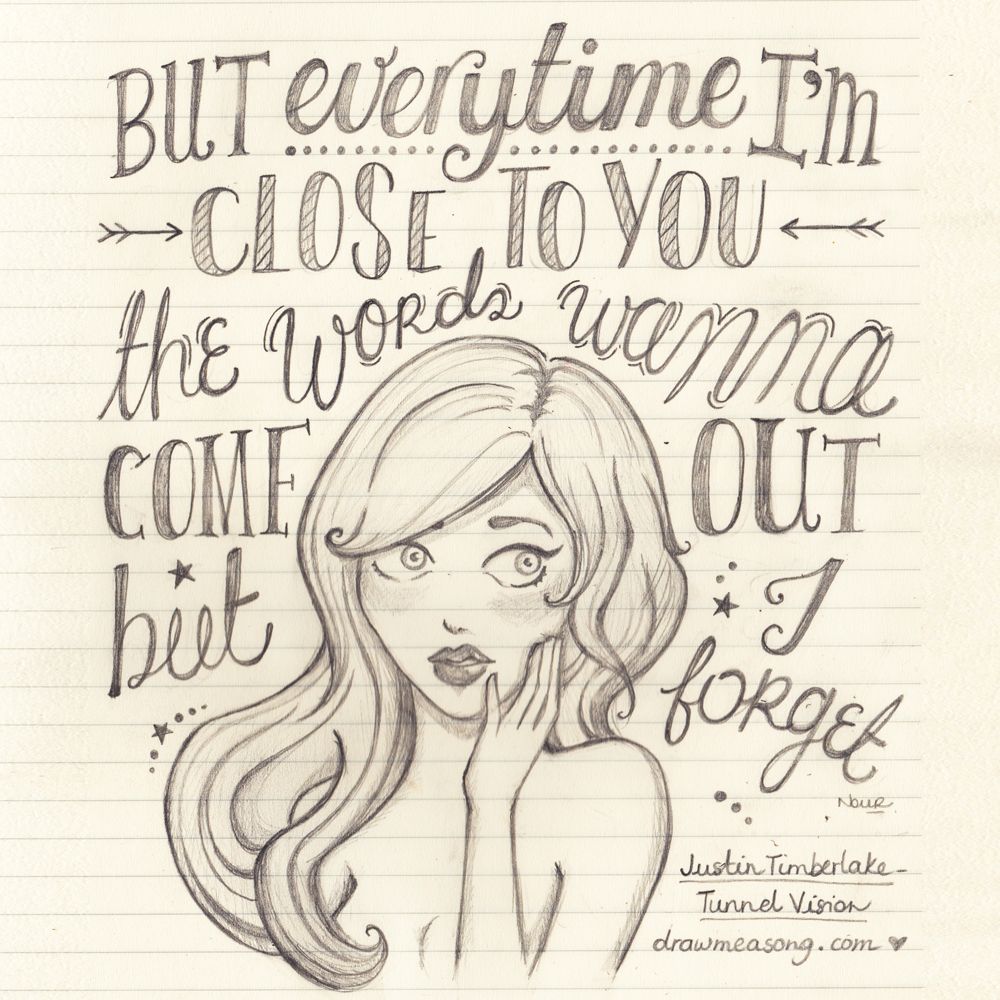 BUT everytime I'm
CLOSE TO YOU
thE WORds wanna
COME OUT
but I
foRgEt
NouR
Justin Timberlake-
Tunnel Vision
drawmeasong.com ♥